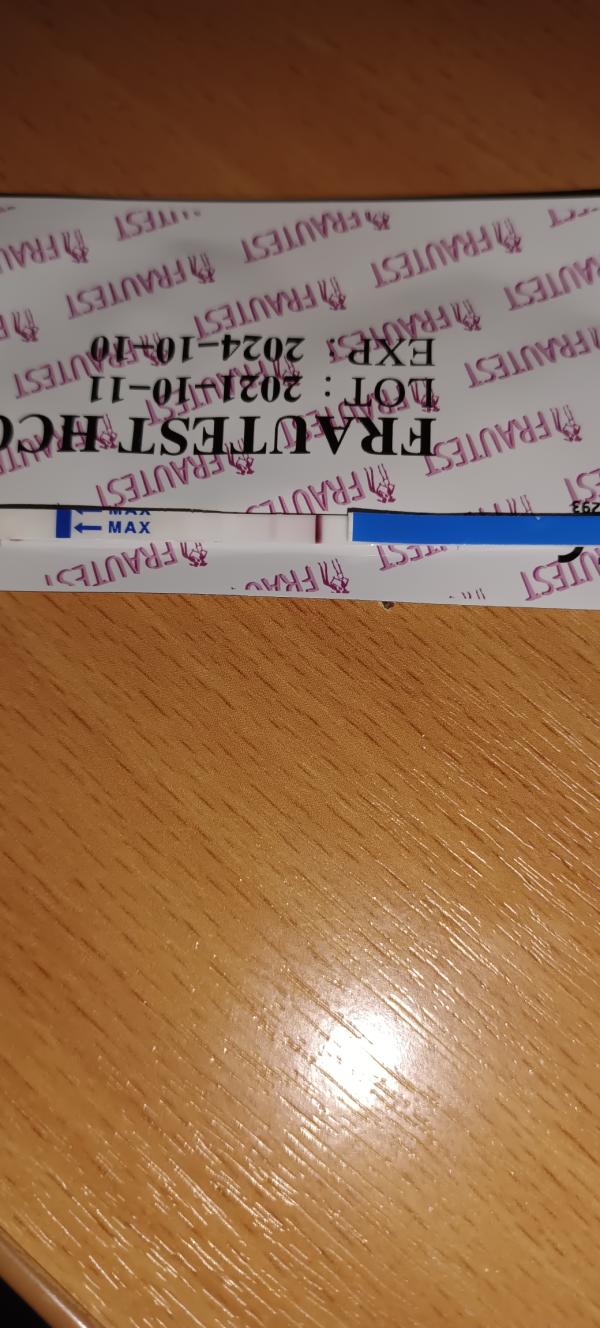 FRAUTEST HC
LOT : 2021-10-11
EXP : 2024-10-10
MAX
MAX
293
FRAUTEST
FRAUTEST
FRAUTEST
FRAUTEST
FRAUTEST
FRAUTEST
FRAUTEST
FRAUTEST
FRAUTEST
FRAUTEST
FRAUTEST